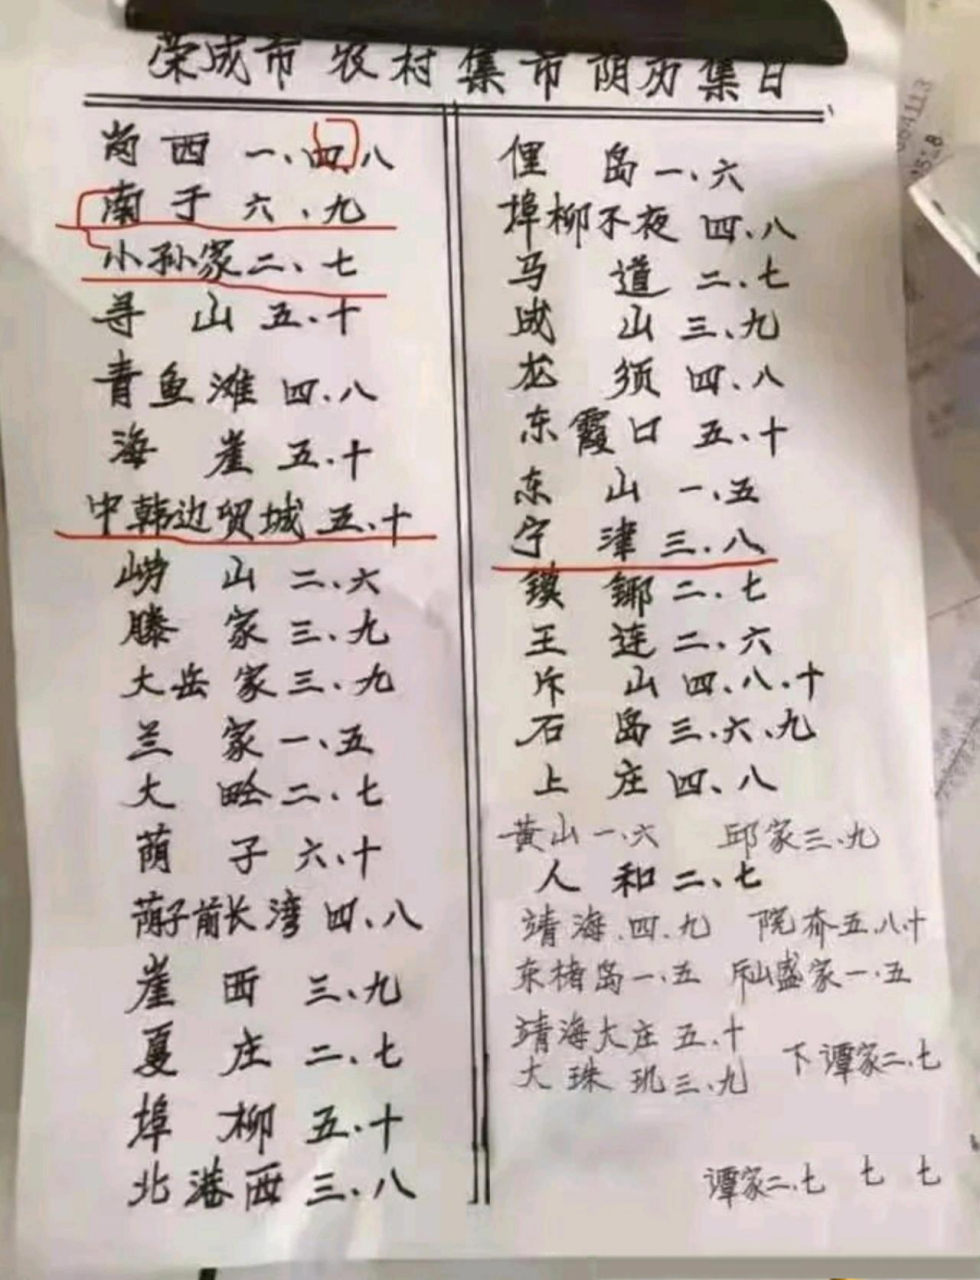 荣成市农村集市阴历集日
岗西 一、四、八
南于 六、九
小孙家 二、七
寻山 五、十
青鱼滩 四、八
海崖 五、十
中韩边贸城 五、十
崂山 二、六
滕家 三、九
大岳家 三、九
兰家 一、五
大畛 二、七
荫子 六、十
荫子前长湾 四、八
崖西 三、九
夏庄 二、七
埠柳 五、十
北港西 三、八
俚岛 一、六
埠柳不夜 四、八
马道 二、七
成山 三、九
龙须 四、八
东霞口 五、十
东山 一、五
宁津 三、八
镆铘 二、七
王连 二、六
斥山 四、八、十
石岛 三、六、九
上庄 四、八
黄山 一、六 邱家 三、九
人和 二、七
靖海 四、九 院夼 五、八、十
东楮岛 一、五 斥山盛家 一、五
靖海大庄 五、十
下谭家 二、七
大珠玑 三、九
谭家 二、七 七 七